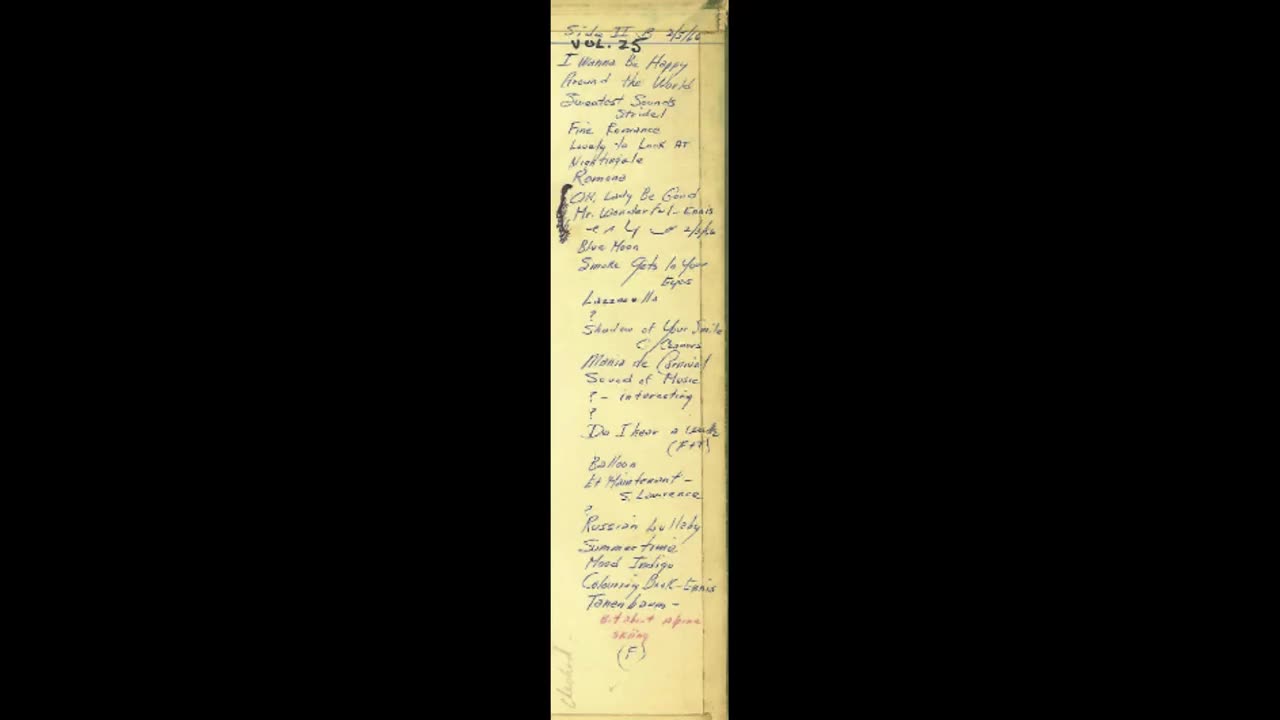 Side II B 2/5/66
VOL. 25
I Wanna Be Happy
Around the World
Sweetest Sounds
Stride!
Fine Romance
Lovely to Look AT
Nightingale
Romona
OH, Lady Be Good
Mr. Wonderful - Ennis
2/5/66
Blue Moon
Smoke Gets In Your
Eyes
?
Shadow of Your Smile
Mania de Carnival
Sound of Music
? - interesting
?
Do I hear a Waltz
Balloon
Et Maintenant -
S. Lawrence
?
Russian Lullaby
Summertime
Mood Indigo
Colouring Book - Ennis
Tanenbaum -
Bit about Alpine
skiing
(F)
Checked